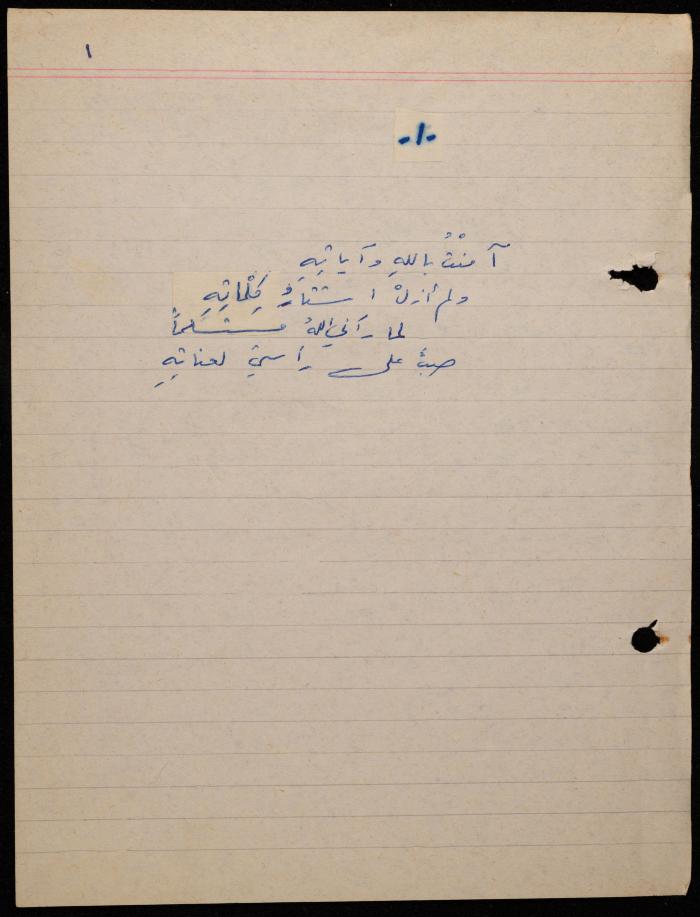 ١
-١-
آمنْتُ باللهِ وآياتِهِ
ولم أزلْ كِلْماتِهِ
لما رآني اللهُ مستسلماً
صبَّ على رأسيَ لعناتِهِ